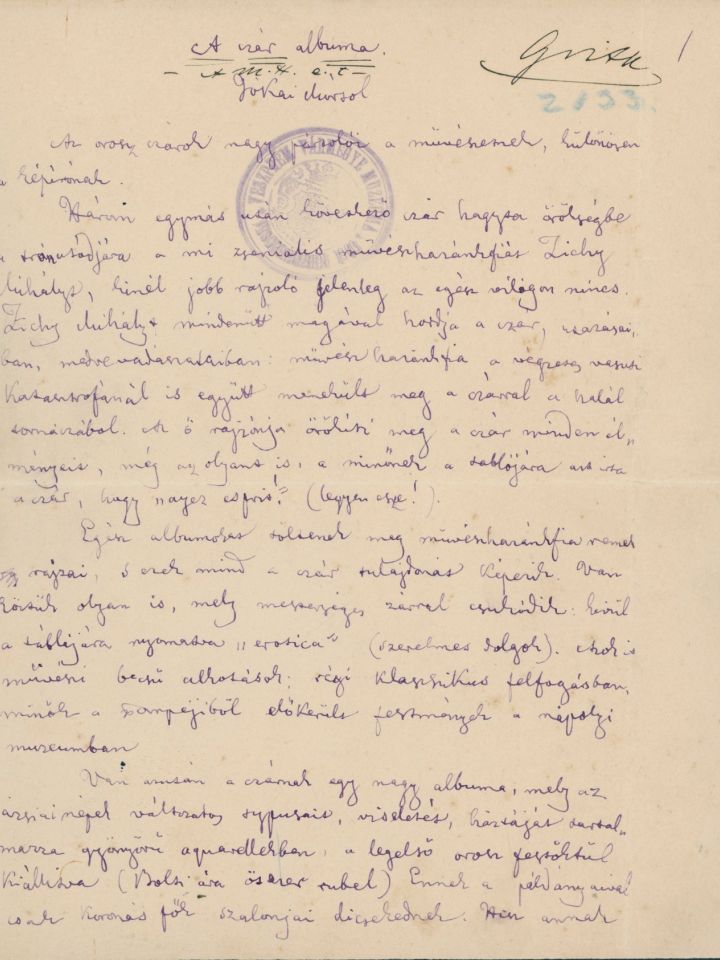 A czár albuma.
Jókai Mórtol
1
2133.
Az orosz czárok nagy pártolói a művészetnek, különösen
a képirónak.
Három egymás után következő czár hagyta örökségbe
a trónutódjára a mi zseniális művészhazánkfiát Zichy
Mihályt, kinél jobb rajzoló jelenleg az egész világon nincs.
Zichy Mihályt mindenütt magával hordja a czár, utazásai,
ban, medvevadászataiban: művész hazánkfia a végzetes vasuti
Katasztrofánál is együtt menekült meg a czárral a halál
tornáczából. Az ő rajzónja örökiti meg a czár minden él„
ményeit, még az olyant is, a minőnek a táblájára azt irta
a czár, hogy „ayez esprit!" (legyen esze!).
Egész albumokat töltenek meg művészhazánkfia remek
rajzai, s ezek mind a czár tulajdonát képezik. Van
köztük olyan is, mely mesterséges zárral csukódik: kivül
a táblájára nyomatva „erotica" (szerelmes dolgok). Azok is
művészi becsű alkotások; régi klasszikus felfogásban,
minők a Pompejiből előkerült festmények a nápolyi
muzeumban
Van azután a czárnak egy nagy albuma, mely az
ázsiai népek változatos typusait, viseletét, háztáját tartal„
mazza gyönyörű aquarellekben, a legelső orosz festőktül
kiállitva (Bolti ára ötezer rubel) Ennek a példányaival
csak koronás fők szalonjai dicsekednek. Hisz annak